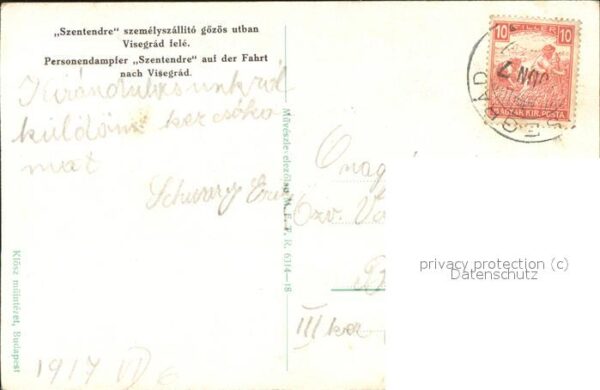 „Szentendre" személyszállító gőzös utban
Visegrád felé.
Personendampfer „Szentendre" auf der Fahrt
nach Visegrád.
Kirándulásunkról
küldöm kezcsóko
mat
Özv.
III ker
1917 VI 6
Művészlevelezőlap M. F. T. R. 6314—18
Klösz műintézet, Budapest
10 FILLÉR 10
MAGYAR KIR. POSTA
privacy protection (c)
Datenschutz